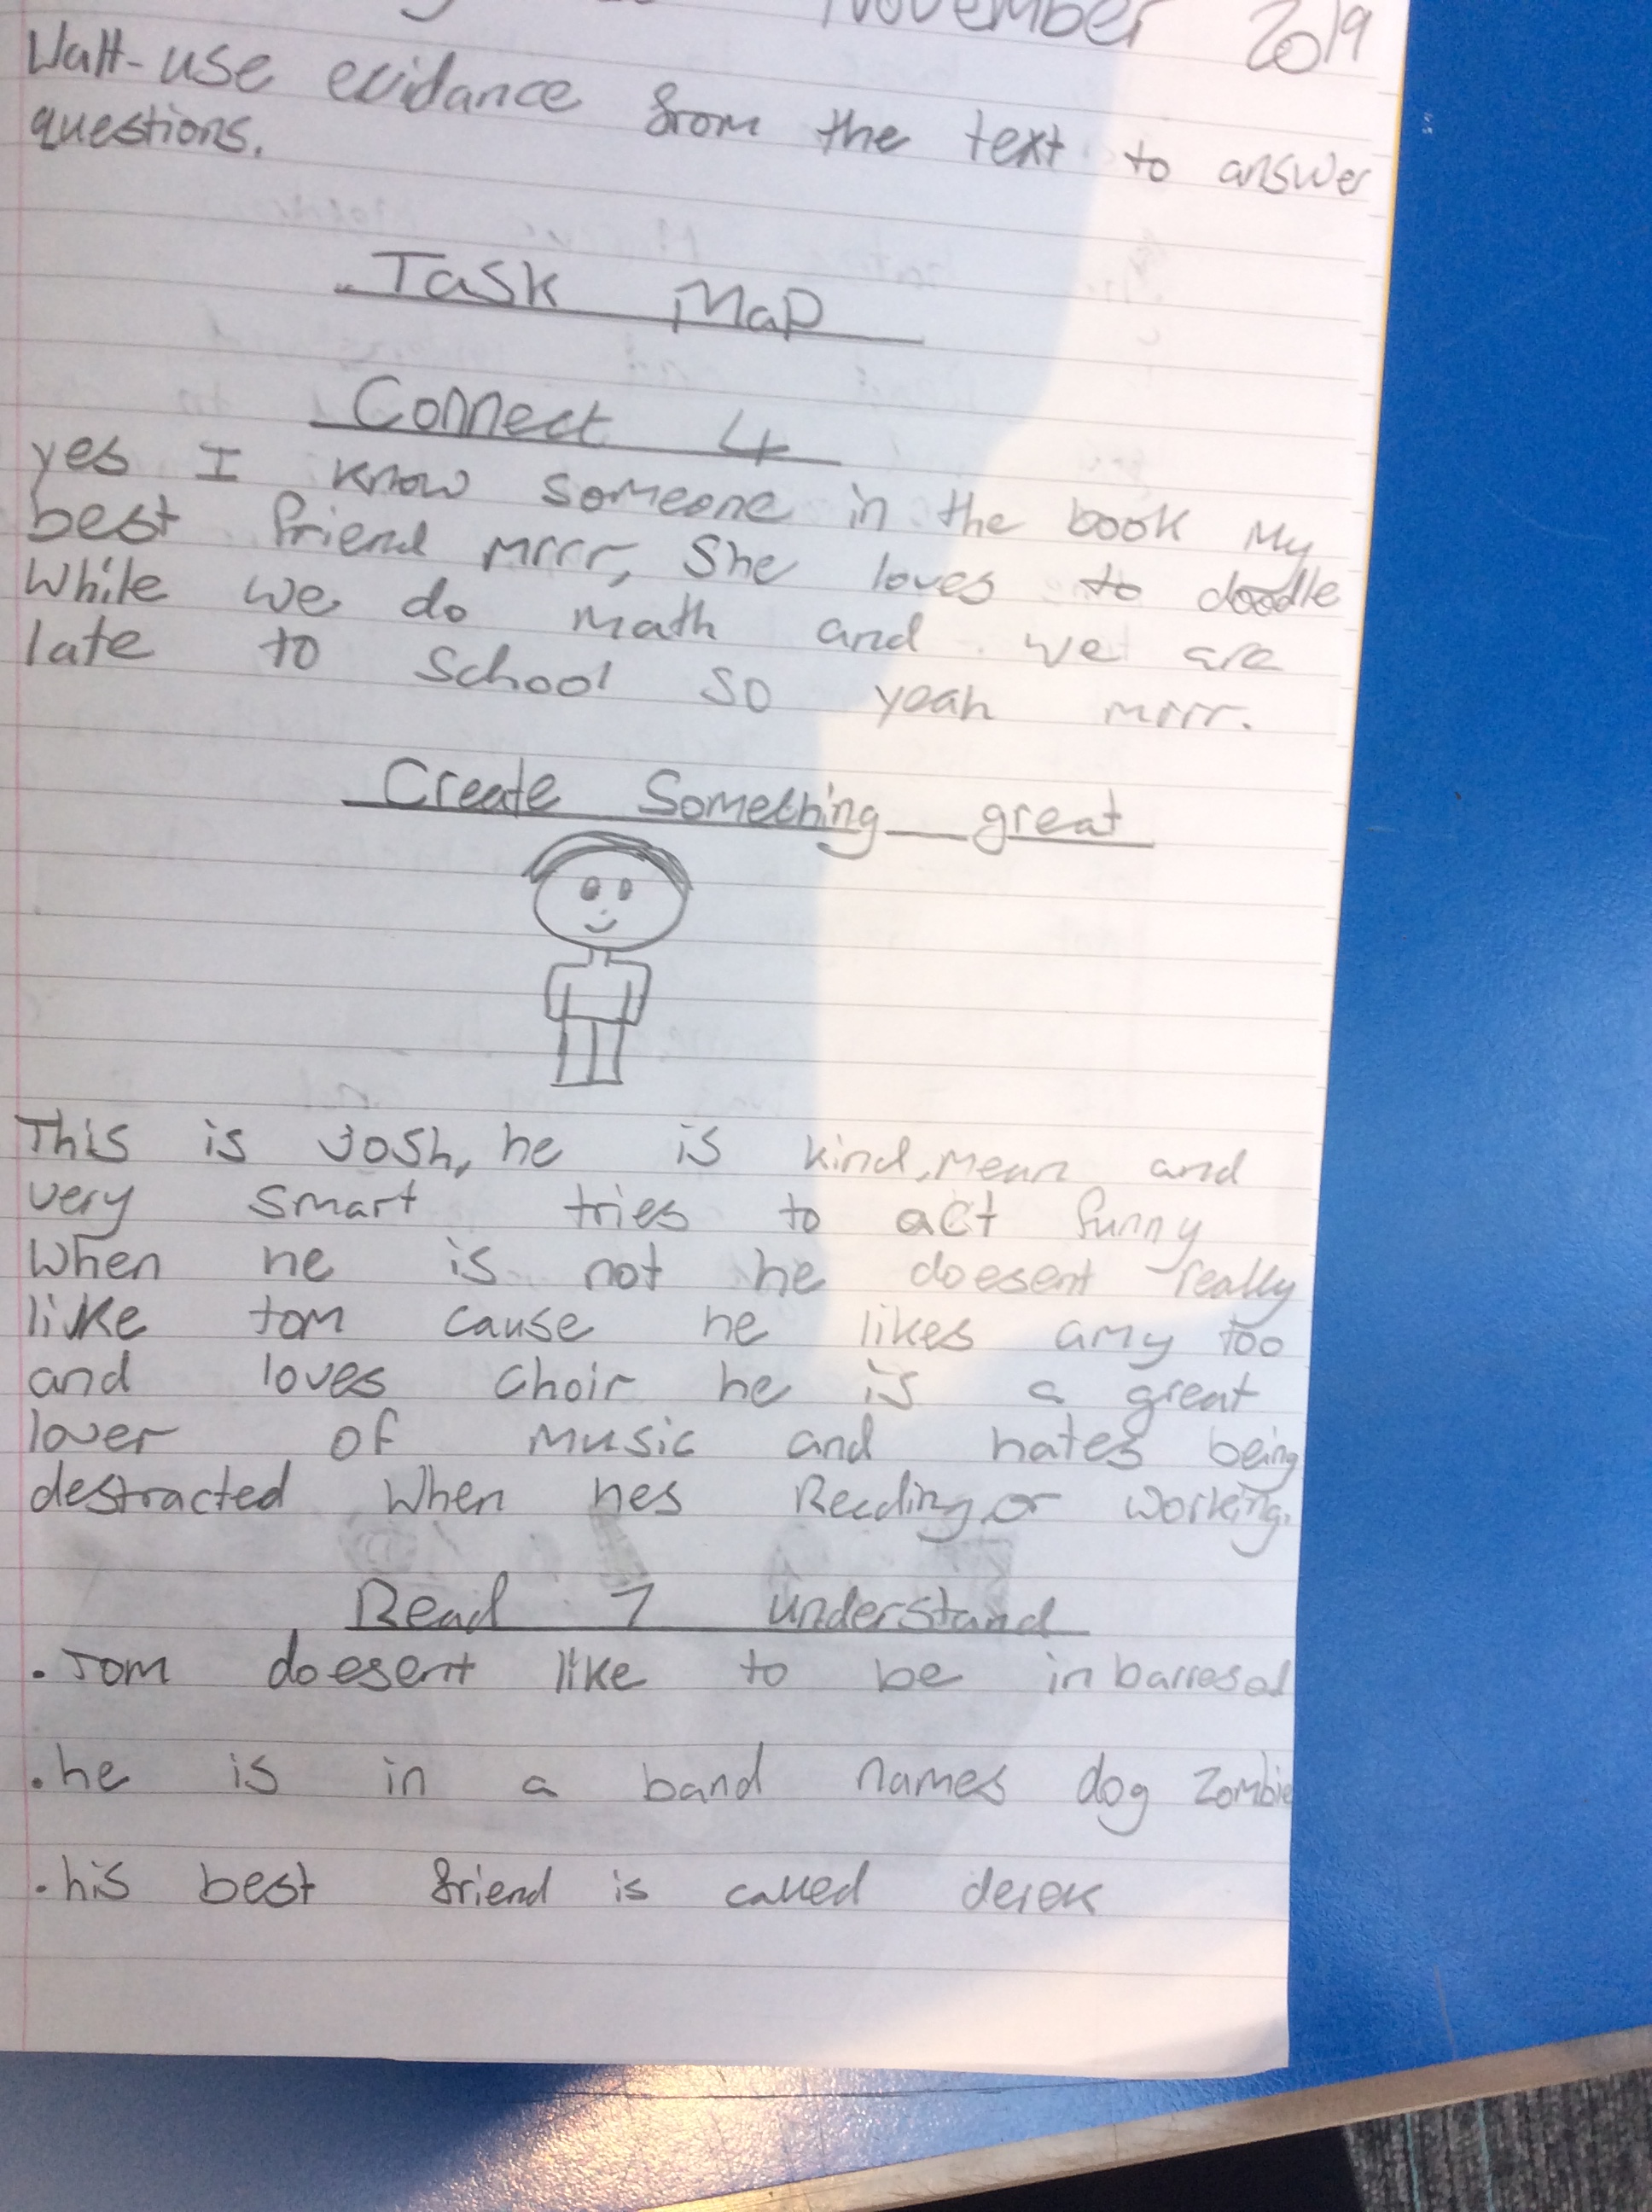 November 2019
Walt-use evidance from the text to answer
questions.
Task Map
Connect 4
yes I know someone in the book My
best friend mrrr, She loves to doodle
While we do math and we are
late to School so yeah mrrr.
Create Something great
This is Josh, he is kind, mean and
very smart tries to act funny
When he is not he doesent really
like tom cause he likes amy too
and loves choir he is a great
lover of music and hates being
destracted When hes Reading or working.
Read 7 understand
. Tom doesent like to be inbarresed
. he is in a band names dog Zombie
. his best friend is called derek